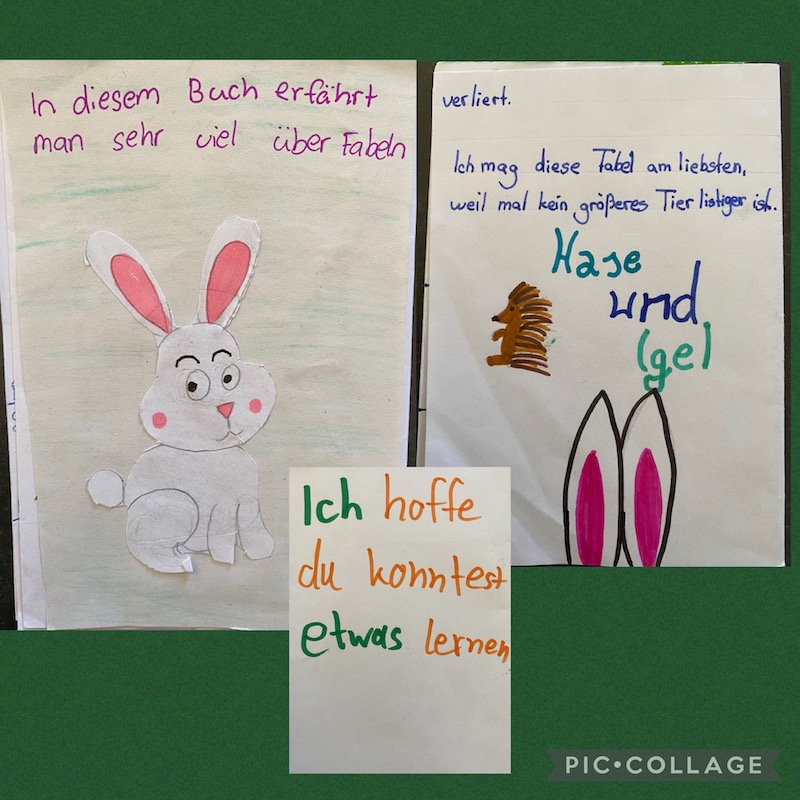 In diesem Buch erfährt
man sehr viel über Fabeln
verliert.
Ich mag diese Fabel am liebsten,
weil mal kein größeres Tier listiger ist.
Hase
und
Igel
Ich hoffe
du konntest
etwas lernen
PIC•COLLAGE